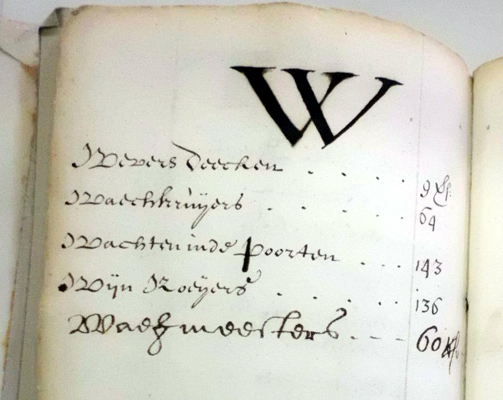 W
Wevers deecken . . . . 9
Waechkruijers . . . . 64
Wachten inde poorten . . . 143
Wijn Roeijers . . . . 136
Waegmeesters . . . 60